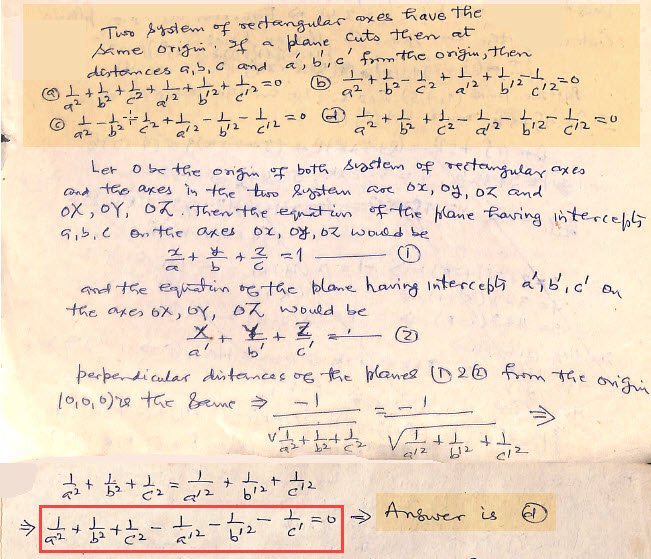 Two system of rectangular axes have the
same origin. If a plane cuts them at
distances a, b, c and a', b', c' from the origin, then
(a) 1/a² + 1/b² + 1/c² + 1/a'² + 1/b'² + 1/c'² = 0 (b) 1/a² + 1/b² - 1/c² + 1/a'² + 1/b'² - 1/c'² = 0
(c) 1/a² - 1/b² - 1/c² + 1/a'² - 1/b'² - 1/c'² = 0 (d) 1/a² + 1/b² + 1/c² - 1/a'² - 1/b'² - 1/c'² = 0
Let O be the origin of both system of rectangular axes
and the axes in the two system are ox, oy, oz and
OX, OY, OZ. Then the equation of the plane having intercepts
a, b, c on the axes ox, oy, oz would be
x/a + y/b + z/c = 1 —— (1)
and the equation of the plane having intercepts a', b', c' on
the axes OX, OY, OZ would be
X/a' + Y/b' + Z/c' = 1 —— (2)
perpendicular distances of the planes (1) & (2) from the origin
(0,0,0) is the same ⇒ -1/√(1/a² + 1/b² + 1/c²) = -1/√(1/a'² + 1/b'² + 1/c'²) ⇒
1/a² + 1/b² + 1/c² = 1/a'² + 1/b'² + 1/c'²
⇒ 1/a² + 1/b² + 1/c² - 1/a'² - 1/b'² - 1/c' = 0 ⇒ Answer is (d)